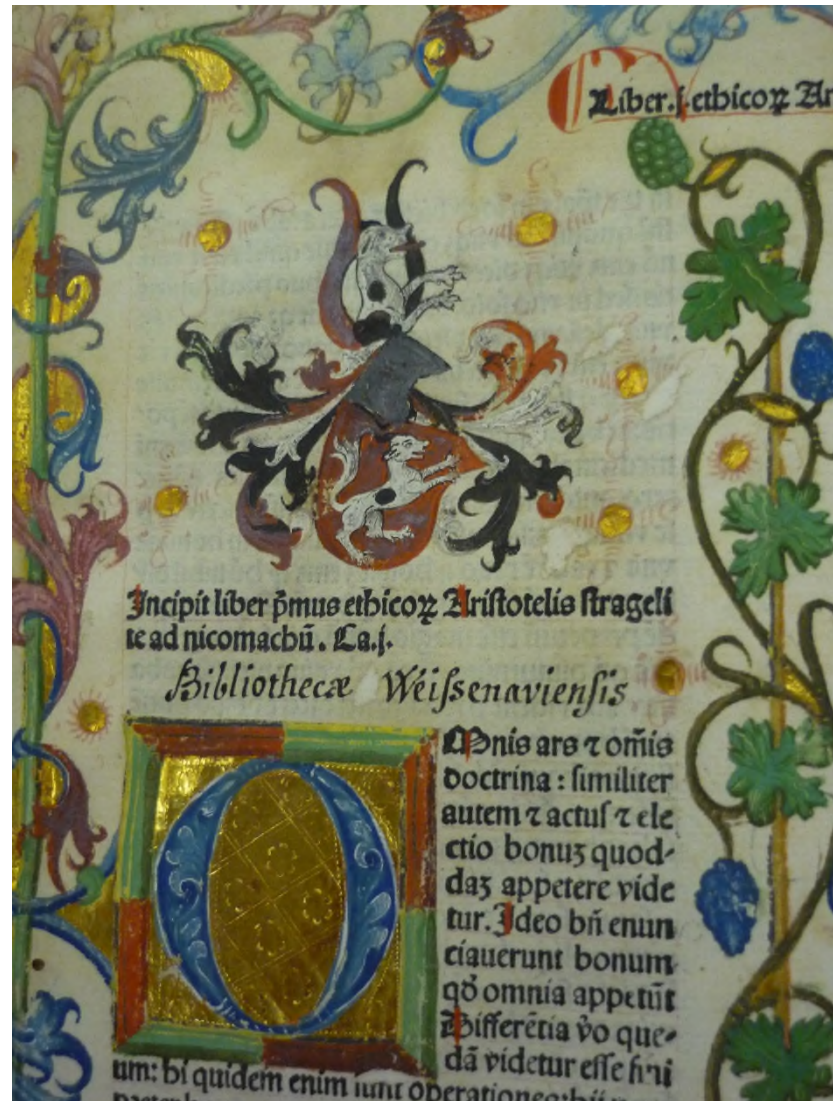 Liber .j. ethicoꝝ Ar
Incipit liber p̄mus ethicoꝝ Aristotelis strageli
te ad nicomachū. Ca.j.
Bibliothecæ Weissenaviensis
OMnis ars ⁊ om̄is
doctrina : similiter
autem ⁊ actus ⁊ ele
ctio bonuꝫ quod⸗
daꝫ appetere vide
tur. Ideo bn̄ enun
ciauerunt bonum
qḋ omnia appetūt
Differētia v̊o que⸗
dā videtur esse fini
um: hi quidem enim sunt operationes: hij